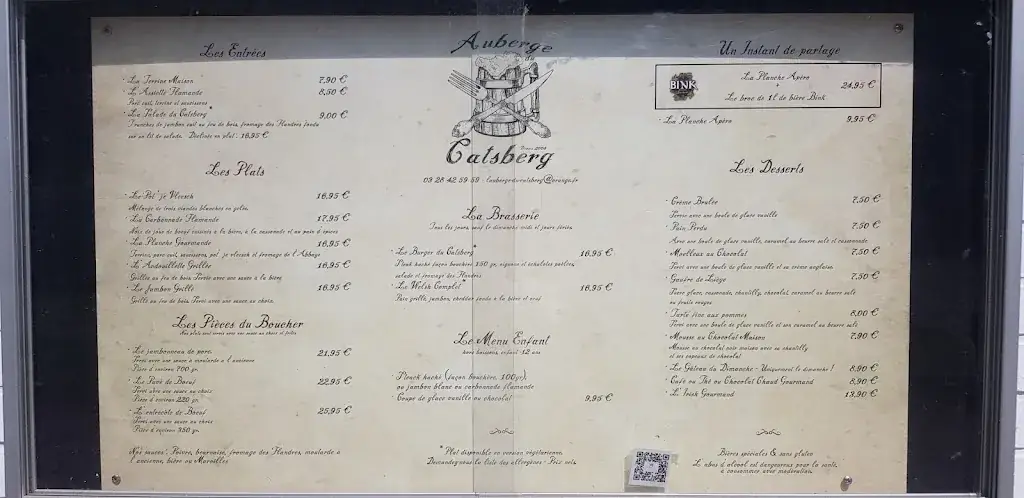 Les Entrées
La Terrine Maison 7,90 €
L'Assiette Flamande 8,50 €
Pâté cuit, terrine et saucisson
La Salade du Catsberg* 9,00 €
Tranches de jambon cuit au feu de bois, fromage des Flandres fondu
sur un lit de salade. Déclinée en plat : 16,95 €
Les Plats
Le Pot' je Vleesch 16,95 €
Mélange de trois viandes blanches en gelée
La Carbonnade Flamande 17,95 €
Noix de joue de boeuf cuisinée à la bière, à la cassonade et au pain d'épices
La Planche Gourmande 16,95 €
Terrine, pâté cuit, saucisson, pot' je vleesch et fromage de l'Abbaye
L'Andouillette Grillée 16,95 €
Grillée au feu de bois. Servie avec une sauce à la bière
Le Jambon Grillé 16,95 €
Grillé au feu de bois. Servi avec une sauce au choix.
Les Pièces du Boucher
Nos plats sont servis avec une sauce au choix et frites
Le jambonneau de porc 21,95 €
Servi avec une sauce à moutarde à l'ancienne
Pièce d'environ 700 gr.
Le Pavé de Boeuf 22,95 €
Servi avec une sauce au choix
Pièce d'environ 220 gr.
L'entrecôte de Boeuf 25,95 €
Servi avec une sauce au choix
Pièce d'environ 350 gr.
Nos sauces : Poivre, béarnaise, fromage des Flandres, moutarde à
l'ancienne, bière ou Maroilles
Auberge
du
Catsberg
03 28 42 59 59 - laubergeducatsberg@orange.fr
La Brasserie
Tous les jours, sauf le dimanche midi et jours fériés
Le Burger du Catsberg* 16,95 €
Steak haché façon bouchère 150 gr, oignons et échalotes poêlées,
salade et fromage des Flandres
Le Welsh Complet* 16,95 €
Pain grillé, jambon, cheddar fondu à la bière et oeuf
Le Menu Enfant
hors boissons, enfant -12 ans
Steack haché (façon bouchère, 100gr)
ou jambon blanc ou carbonnade flamande
Coupe de glace vanille ou chocolat 9,95 €
* Plat disponible en version végétarienne.
Demandez-nous la liste des allergènes - Prix nets
Un Instant de partage
BINK
La Planche Apéro
+
Le broc de 1l de bière Bink
24,95 €
La Planche Apéro 9,95 €
Les Desserts
Crème Brulée 7,50 €
Servie avec une boule de glace vanille
Pain Perdu 7,50 €
Avec une boule de glace vanille, caramel au beurre salé et cassonade
Moelleux au Chocolat 7,50 €
Servi avec une boule de glace vanille et sa crème anglaise
Gaufre de Liège 7,50 €
Sucre glace, cassonade, chantilly, chocolat, caramel au beurre salé
ou fruits rouges
Tarte fine aux pommes 8,00 €
Servi avec une boule de glace vanille et son caramel au beurre salé
Mousse au Chocolat Maison 7,90 €
Mousse au chocolat noir maison avec sa chantilly
et ses copeaux de chocolat
Le Gâteau du Dimanche - Uniquement le dimanche ! 8,90 €
Café ou Thé ou Chocolat Chaud Gourmand 8,90 €
L'Irish Gourmand 13,90 €
Bières spéciales & sans gluten
L'abus d'alcool est dangereux pour la santé,
à consommer avec modération.